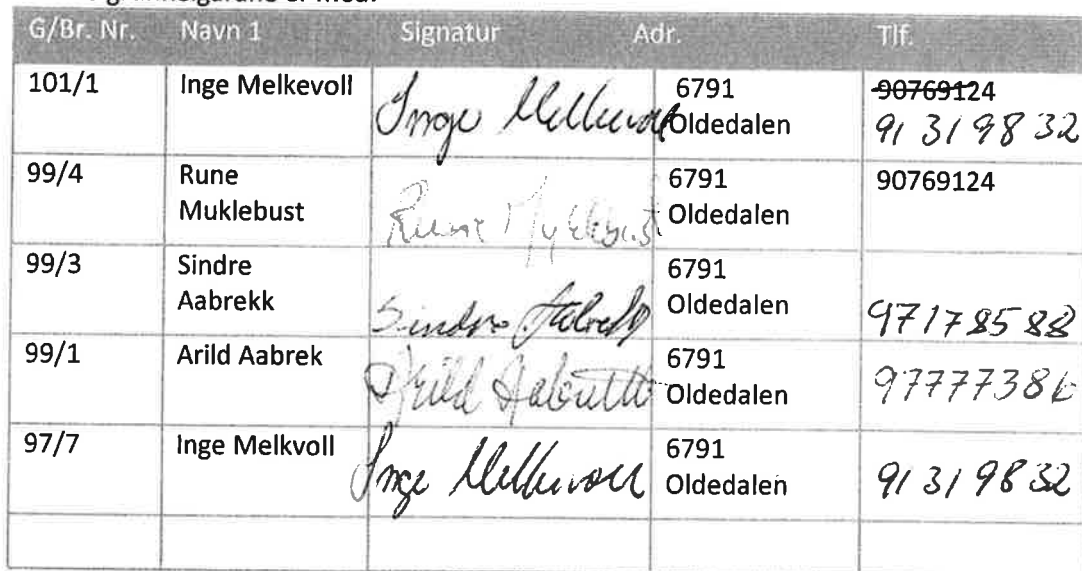 G/Br. Nr. Navn 1 Signatur Adr. Tlf.
101/1 Inge Melkevoll Inge Melkevoll 6791 Oldedalen 90769124
91319832
99/4 Rune Muklebust Rune Myklebust 6791 Oldedalen 90769124
99/3 Sindre Aabrekk Sindre Aabrekk 6791 Oldedalen 97178588
99/1 Arild Aabrek Arild Aabrekk 6791 Oldedalen 97777386
97/7 Inge Melkvoll Inge Melkevoll 6791 Oldedalen 91319832